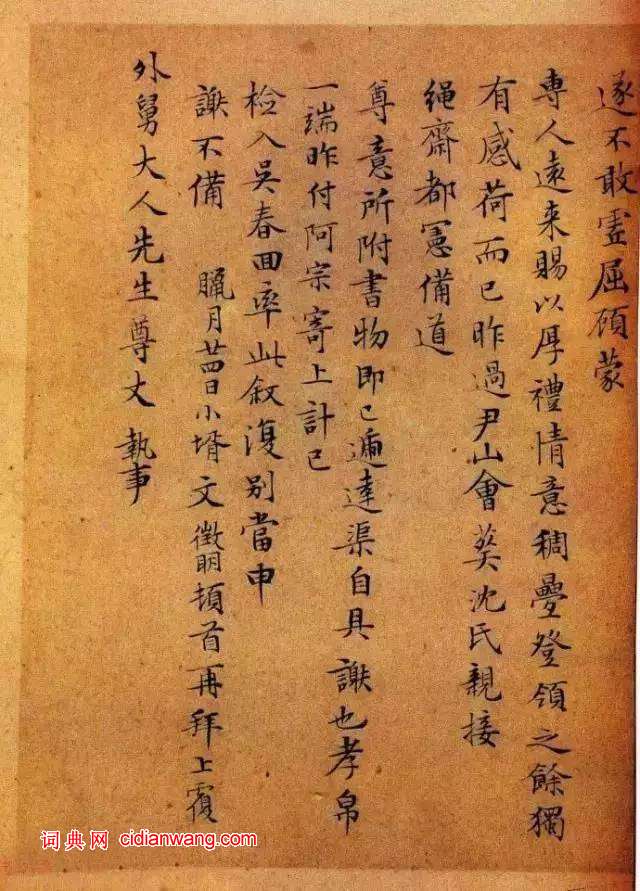 遂不敢虚屈顾蒙
專人遠来賜以厚禮情意稠疊登領之餘獨
有感荷而已昨過尹山會葬沈氏親接
繩齋都憲備道
尊意所附書物即已遞達渠自具謝也孝帛
一端昨付阿宗寄上計已
檢入吳春回率此叙復别當申
謝不備 臘月廿四日小壻文徵明頓首再拜上覆
外舅大人先生尊丈執事
词典网 cidianwang.com